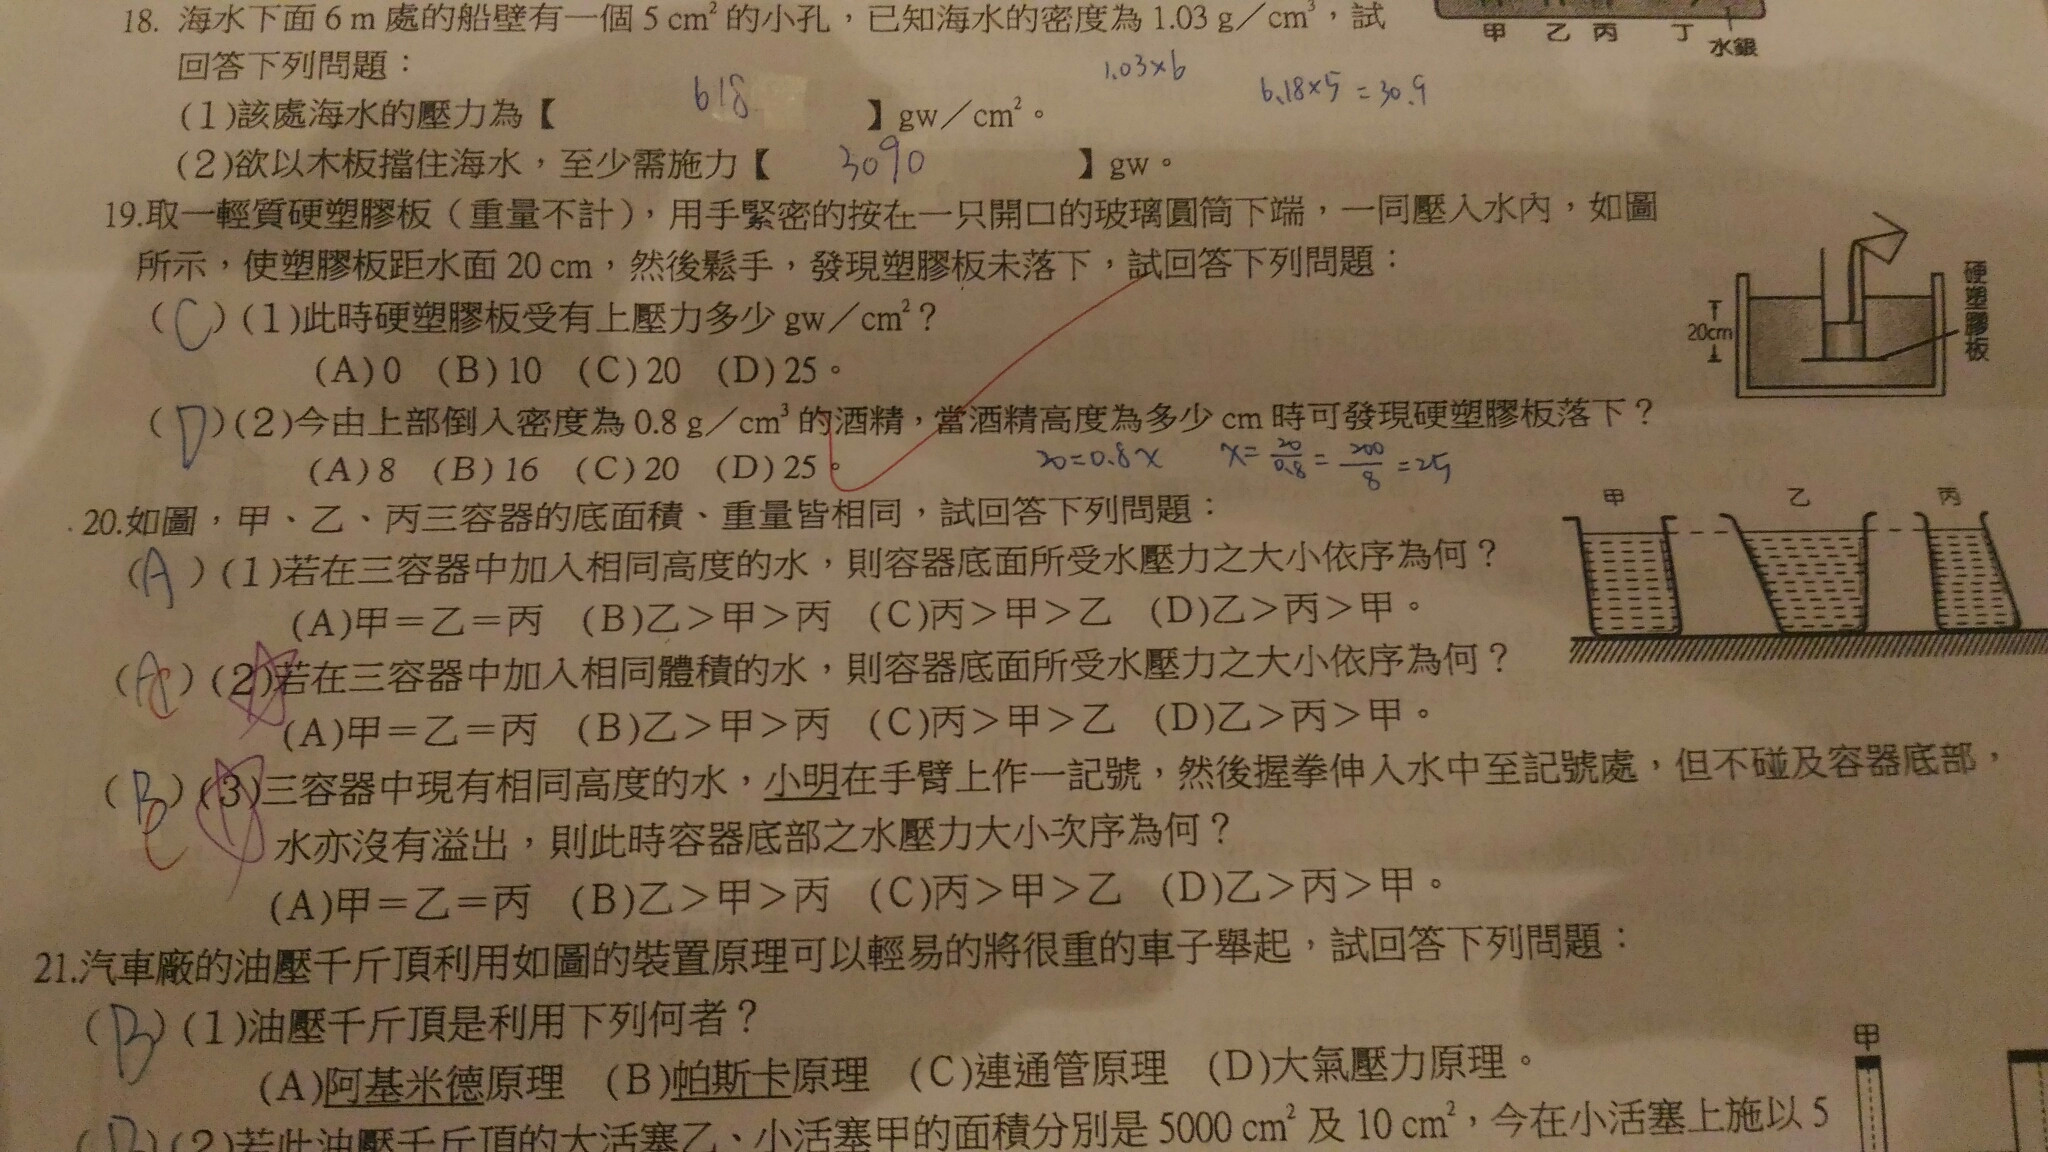 18. 海水下面 6 m 處的船壁有一個 5 cm² 的小孔，已知海水的密度為 1.03 g／cm³，試
回答下列問題：
1.03×6
6.18×5=30.9
(1)該處海水的壓力為【 618 】gw／cm²。
(2)欲以木板擋住海水，至少需施力【 3090 】gw。
甲 乙 丙 丁 水銀
19.取一輕質硬塑膠板（重量不計），用手緊密的按在一只開口的玻璃圓筒下端，一同壓入水內，如圖
所示，使塑膠板距水面 20 cm，然後鬆手，發現塑膠板未落下，試回答下列問題：
(C)(1)此時硬塑膠板受有上壓力多少 gw／cm²？
(A)0 (B)10 (C)20 (D)25。
(D)(2)今由上部倒入密度為 0.8 g／cm³ 的酒精，當酒精高度為多少 cm 時可發現硬塑膠板落下？
(A)8 (B)16 (C)20 (D)25。
20=0.8x x=20/0.8=200/8=25
20cm
硬塑膠板
20.如圖，甲、乙、丙三容器的底面積、重量皆相同，試回答下列問題：
甲 乙 丙
(A)(1)若在三容器中加入相同高度的水，則容器底面所受水壓力之大小依序為何？
(A)甲＝乙＝丙 (B)乙＞甲＞丙 (C)丙＞甲＞乙 (D)乙＞丙＞甲。
(AC)(2)若在三容器中加入相同體積的水，則容器底面所受水壓力之大小依序為何？
(A)甲＝乙＝丙 (B)乙＞甲＞丙 (C)丙＞甲＞乙 (D)乙＞丙＞甲。
(BC)(3)三容器中現有相同高度的水，小明在手臂上作一記號，然後握拳伸入水中至記號處，但不碰及容器底部，
水亦沒有溢出，則此時容器底部之水壓力大小次序為何？
(A)甲＝乙＝丙 (B)乙＞甲＞丙 (C)丙＞甲＞乙 (D)乙＞丙＞甲。
21.汽車廠的油壓千斤頂利用如圖的裝置原理可以輕易的將很重的車子舉起，試回答下列問題：
(B)(1)油壓千斤頂是利用下列何者？
(A)阿基米德原理 (B)帕斯卡原理 (C)連通管原理 (D)大氣壓力原理。
甲
(2)若此油壓千斤頂的大活塞乙、小活塞甲的面積分別是 5000 cm² 及 10 cm²，今在小活塞上施以 5